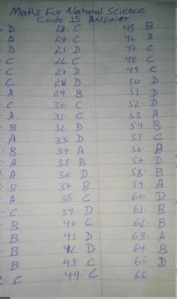 Maths For Natural Science
Code 15 Answer
D 23. C 45. B
A 24. C 46. A
D 25. D 47. C
C 26. C 48. C
C 27. D 49. C
C 28. D 50. D
A 29. B 51. D
C 30. C 52. D
A 31. C 53. A
B 32. D 54. B
A 33. D 55. C
B 34. A 56. A
A 35. B 57. D
A 36. D 58. B
B 37. B 59. A
A 38. C 60. D
C 39. D 61. B
B 40. C 62. B
B 41. D 63. A
B 42. D 64. B
B 43. C 65. D
C 44. C 66